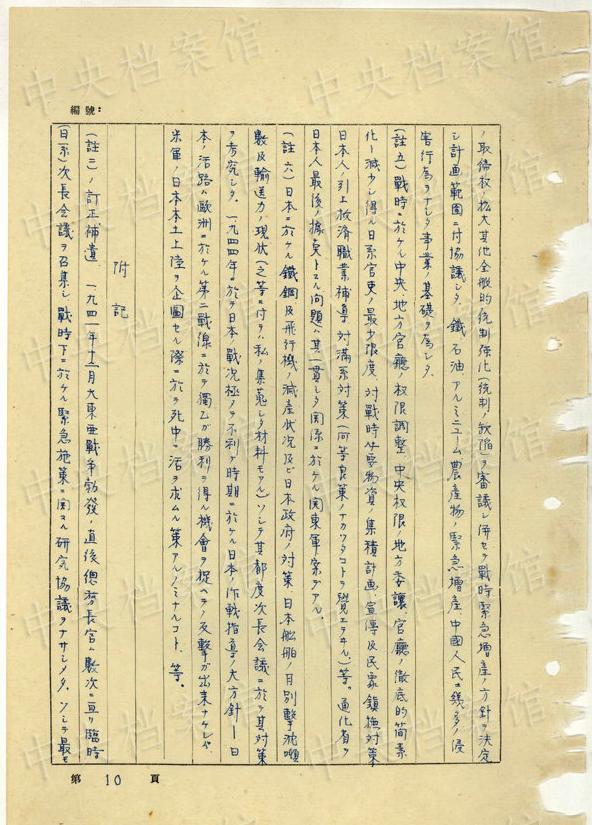 編號：
ノ取締权ノ拡大其他全般的統制強化(統制ノ欠陥)ヲ審議シ併セテ戰時緊急增産ノ方針ヲ決定
シ計画範囲ニ付協議シタ、鐵 石油、アルミニューム 農産物ノ緊急増産、中國人民ニ幾多ノ侵
害行為ヲナシタ事業ノ基礎ヲ為シタ、
(註五)戰時ニ於ケル中央地方官廳ノ权限調整 中央权限ノ地方委讓 官廳ノ徹底的簡素
化ト減少シ得ル日系官吏ノ最少限度 対戰時必要物資ノ集積計画、宣傳及民衆鎮撫対策
日本人ノ引上救濟職業補導 対滿系対策(何等良策ノナカツタコトヲ発見エラネル)等。通化省ヲ
日本人最後ノ據点トスル問題ハ其一貫シタ関係ニ於ケル関東軍案デアル.
(註六)日本ニ於ケル鐵鋼及飛行機ノ減産状况及ビ日本政府ノ対策 日本船舶ノ月別擊沈噸
数及輸送力ノ現状(之等ニ付テハ私ノ集蒐シタ材料モアル)ソシテ其都度次長会議ニ於テ其対策
ヲ考究シタ. 一九四四年ニ於テ日本ノ戰况極メテ不利ノ時期ニ於ケル日本ノ作戰指導ノ大方針—日
本ノ活路ハ歐洲ニ於ケル第二戰線ニ於テ獨乙ガ勝利ヲ得ル機會ヲ捉ヘテノ反擊ガ出来ナケレバ
米軍ノ日本本土上陸ヲ企圖セル際ニ於テ死中ニ活ヲ求ムル策アルノミナルコト、等。
附 記
(註三)ノ訂正補遺 一九四一年十二月大東亜戰爭勃發ノ直後總務長官ハ数次ニ亘リ臨時
(日系)次長会議ヲ召集シ戰時下ニ於ケル緊急施策ニ関スル研究協議ヲナサシメタ、ソシテ最モ
第 10 頁
中央档案馆